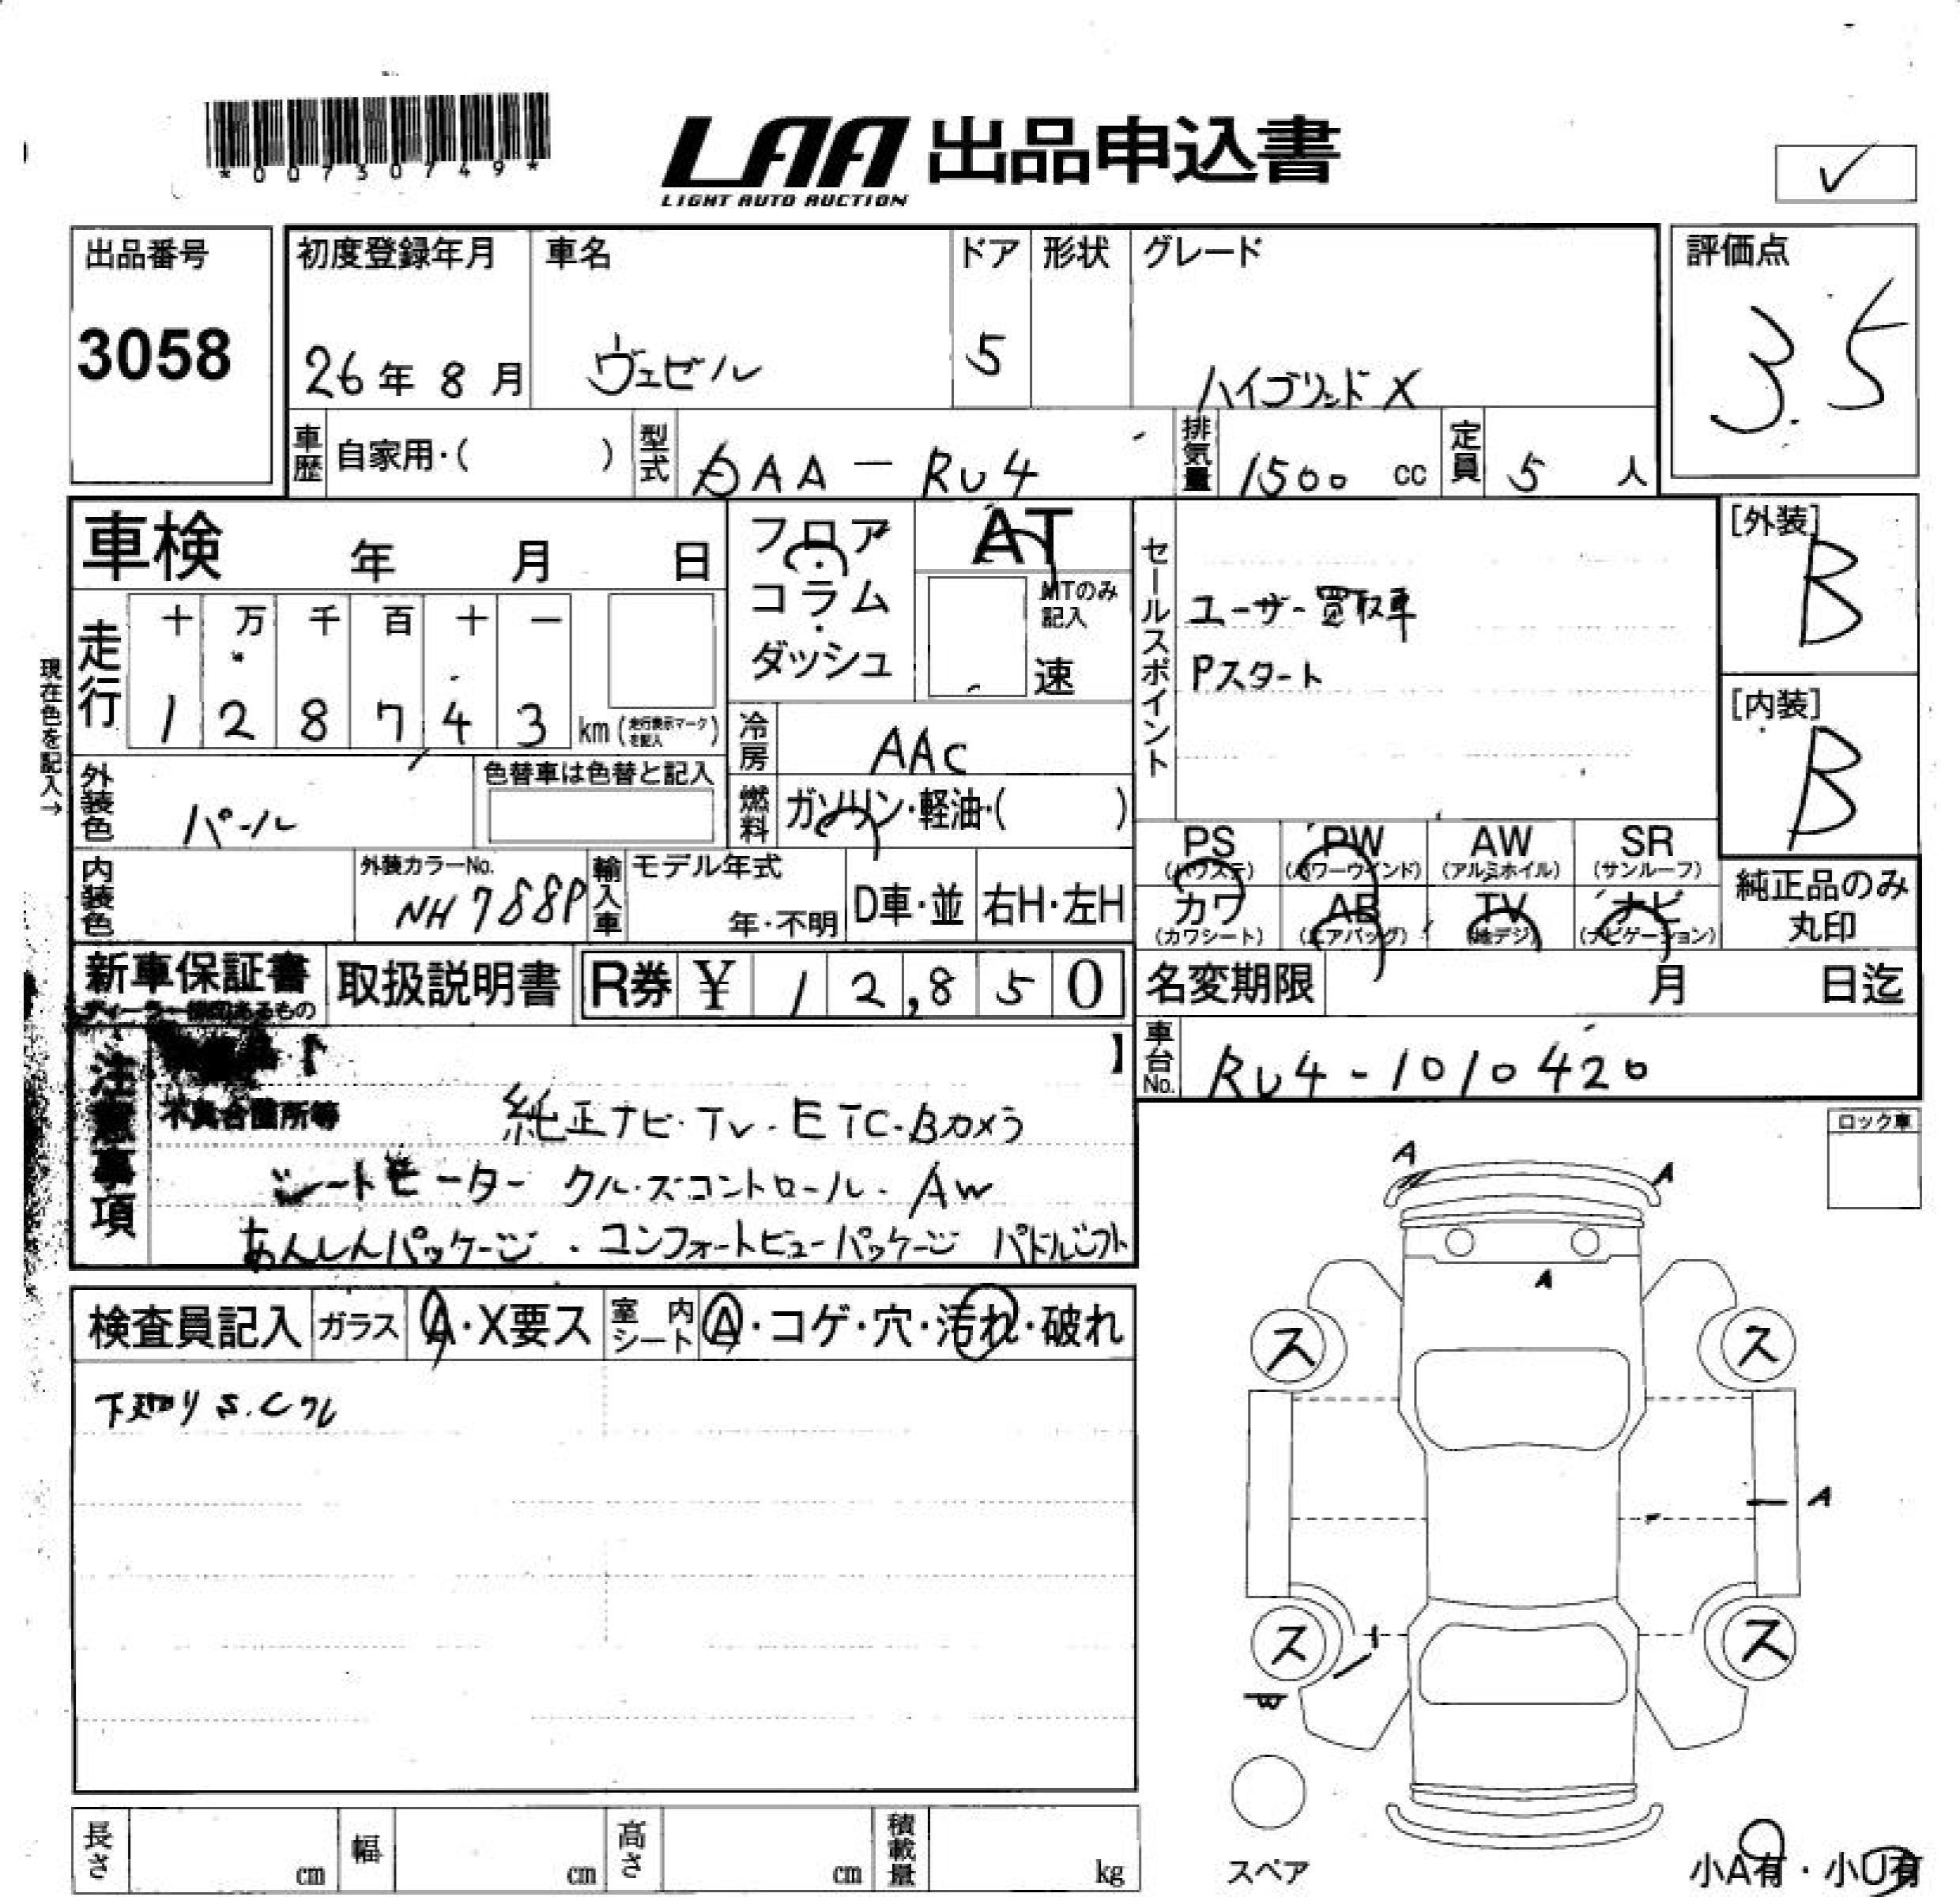 *00730749*
LAA 出品申込書
LIGHT AUTO AUCTION
✓
出品番号
3058
初度登録年月
26年 8月
車名
ヴェゼル
ドア
5
形状
グレード
ハイブリッドX
評価点
3.5
車歴 自家用・( )
型式 DAA-RU4
排気量 1500 cc
定員 5 人
車検 年 月 日
フロア・コラム・ダッシュ
AT
MTのみ記入
速
セールスポイント
ユーザー買取車
Pスタート
[外装]
B
[内装]
B
現在色を記入→
走行
十 万 千 百 十 一
1 2 8 7 4 3 km (走行表示マークを記入)
冷房 AAC
外装色 パール
色替車は色替と記入
燃料 ガソリン・軽油・( )
PS (パワステ)
PW (パワーウインド)
AW (アルミホイル)
SR (サンルーフ)
カワ (カワシート)
AB (エアバッグ)
TV (地デジ)
ナビ (ナビゲーション)
純正品のみ丸印
内装色
外装カラーNo.
NH788P
輸入車
モデル年式
年・不明
D車・並
右H・左H
新車保証書
取扱説明書
R券 ¥ 12,850
名変期限 月 日迄
車台No. RU4-1010420
注意事項
】
不具合箇所等
純正ナビ・TV・ETC・Bカメラ
シートヒーター クルーズコントロール・AW
あんしんパッケージ・コンフォートビューパッケージ パドルシフト
ロック車
A
A
A
検査員記入
ガラス A・X要ス
室内シート A・コゲ・穴・汚れ・破れ
下廻りS.Cクレ
ス
ス
A
ス
ス
スペア
長さ cm
幅 cm
高さ cm
積載量 kg
小A有・小U有